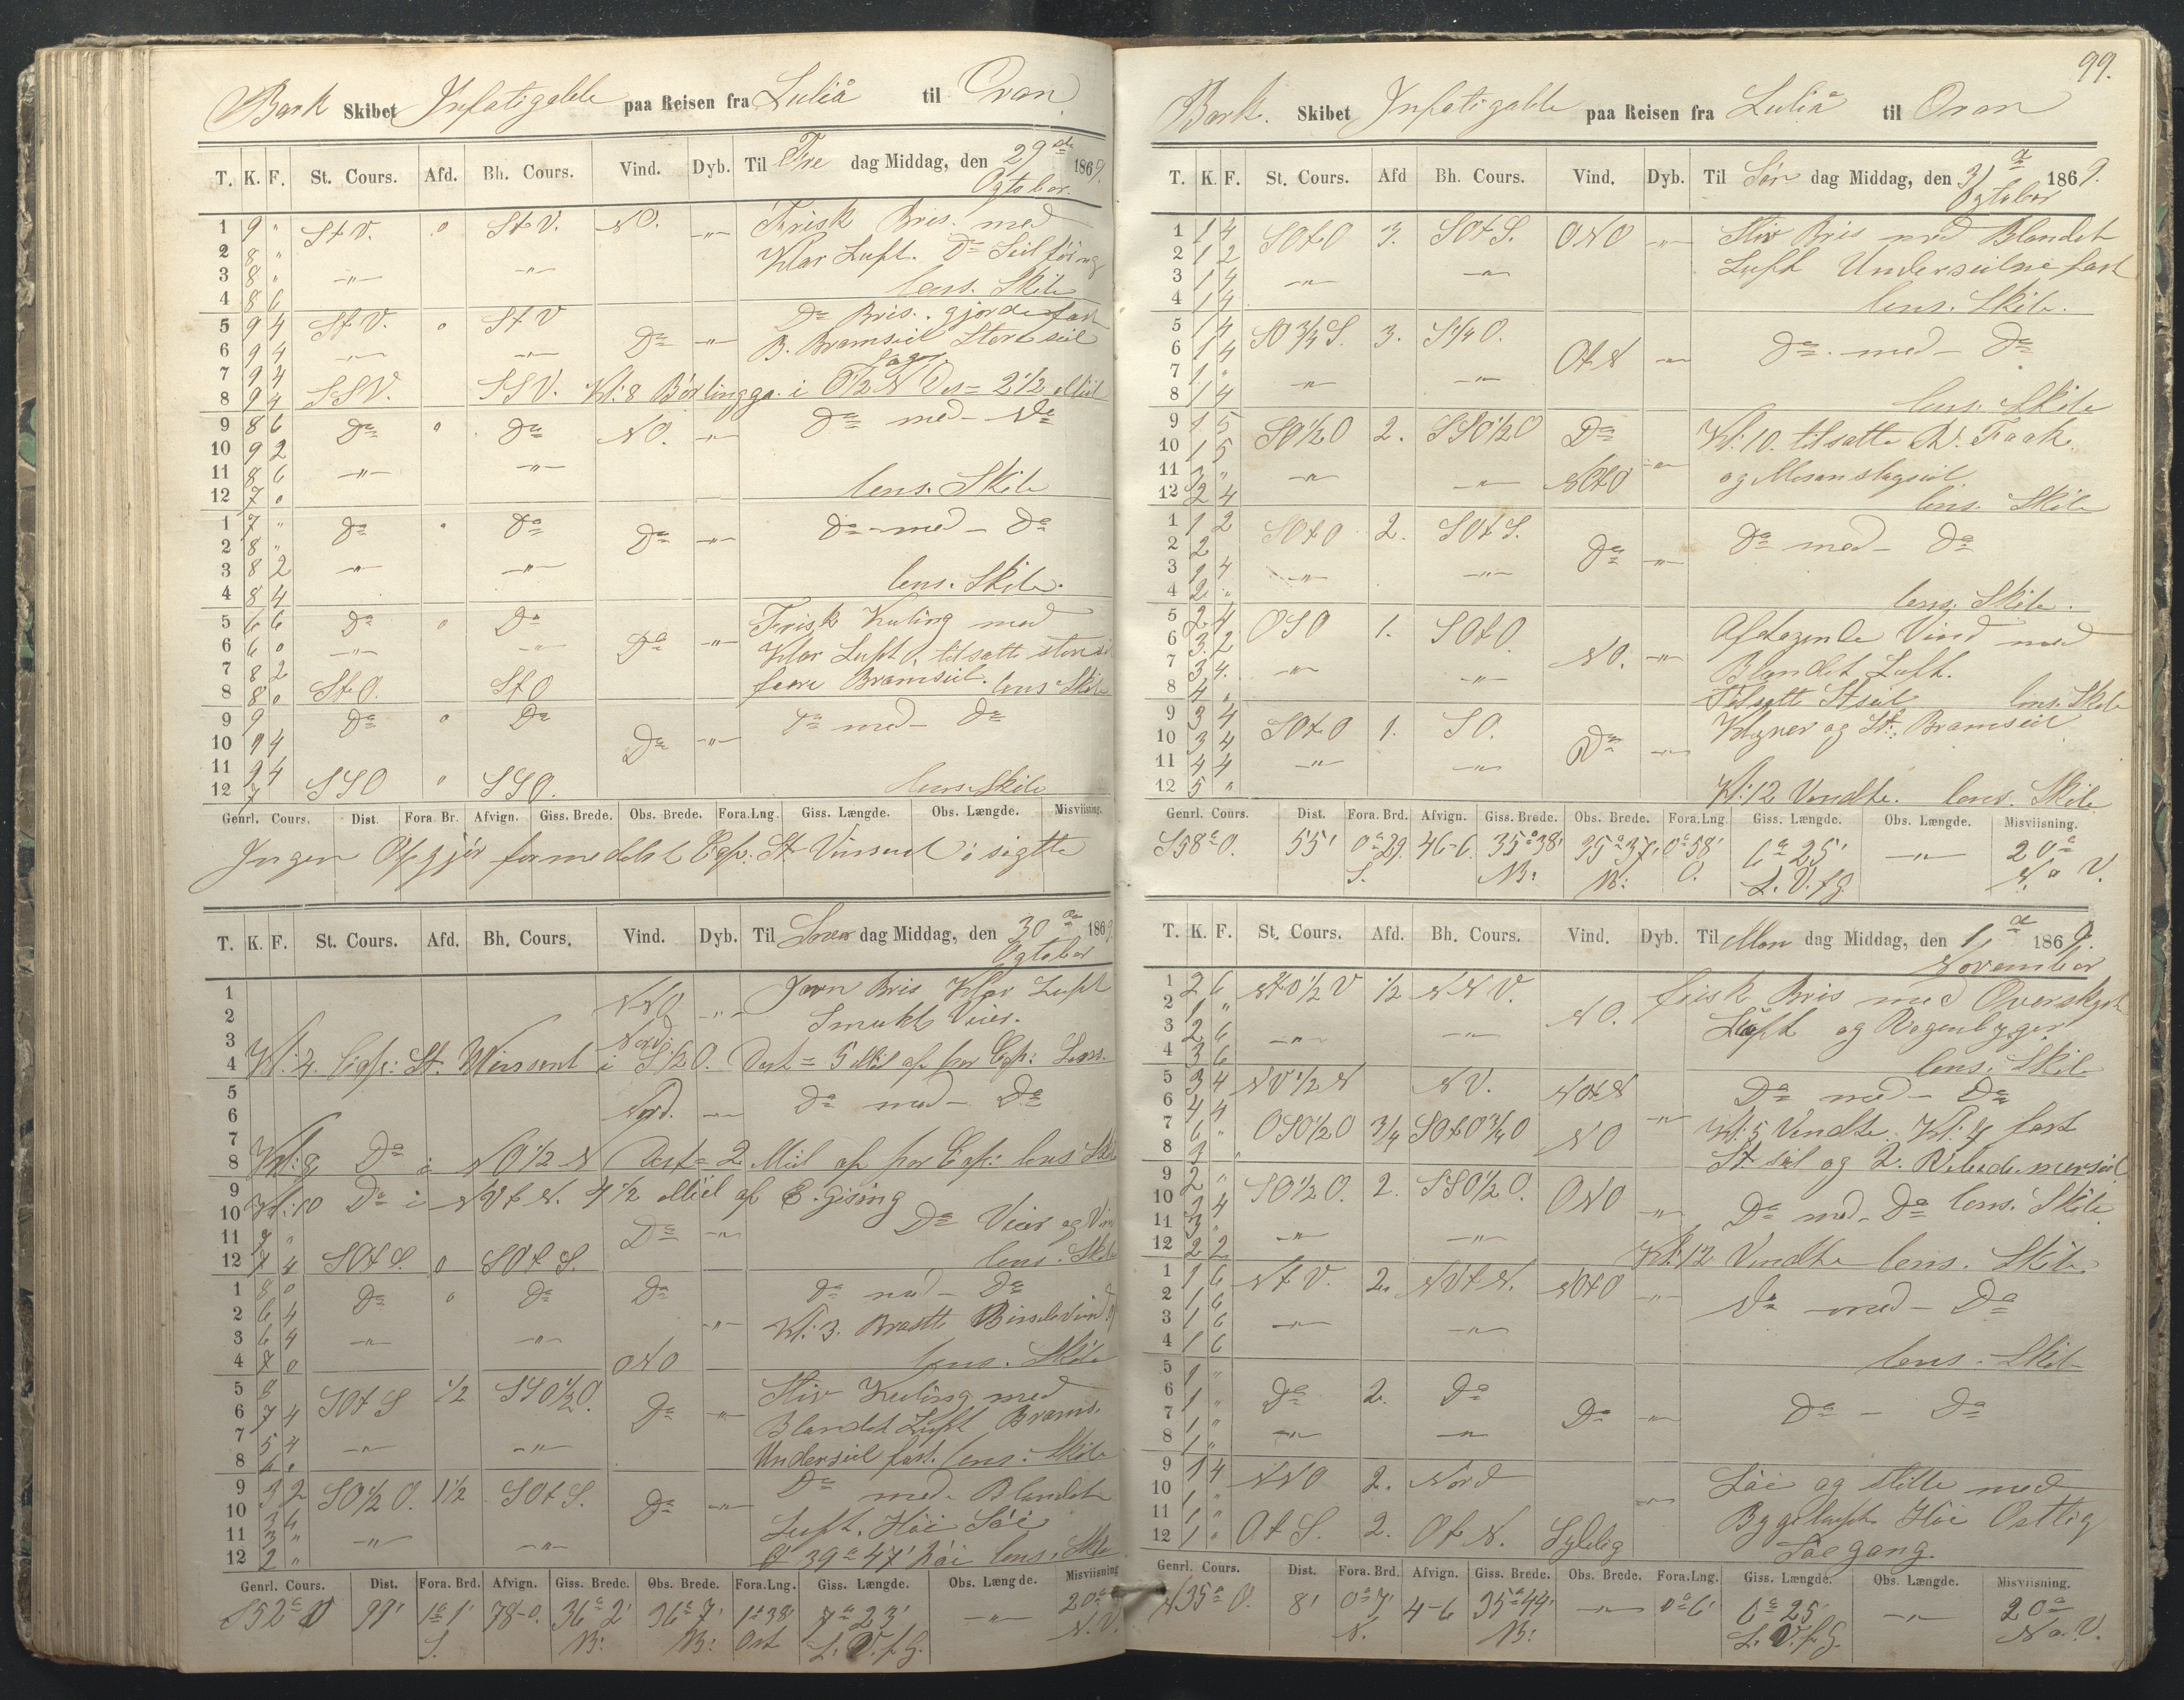 Bark Skibet Infatigable paa Reisen fra Luliå til Oran
T. K. F. St. Cours. Afd. Bh. Cours. Vind. Dyb. Til Fre dag Middag, den 29de 1869.
Ogtober.
1 9 " StV. o StV. NO. -"- Frisk Bris. med
2 8 " Klar Luft. Do Seilføring
3 8 " -"- -"- lens. Skib
4 8 6
5 9 4 StV. o StV Do -"- Do Bris. gjorde fast
6 9 4 -"- -"- B. Bramseil Storeseil
7 9 4
8 9 4 SSV. SSV. Kl: 8 i O1/2N Des= 2 1/2 Miil
9 8 6 Do o Do NO. -"- Do med- Do
10 9 2
11 8 6 -"- -"-
12 7 o lens. Skib
1 7 " Do " Do Do -"- Do -med- Do
2 8 "
3 8 2 -"- -"-
4 8 4 lens. Skib.
5 6 6 Do o Do Do -"- Frisk Kuling med
6 6 o -"- -"- Klar Luft, tilsatte
7 8 2
8 8 o StO. StO Bramseil. lens Skib
9 9 Do o Do Do -"- Do med- Do
10 9 4
11 9 4
12 7 SSO " SSO. lens. Skib
Genrl. Cours. Dist. Fora. Br. Afvign. Giss. Brede. Obs. Brede. Fora.Lng. Giss. Længde. Obs. Længde. Misviisning.
Ingen Opgjör formedelst Cap: St Vinsent i sigtte
T. K. F. St. Cours. Afd. Bh. Cours. Vind. Dyb. Til Löver dag Middag, den 30te 1869
Ogtober
1 NNO -"- Jevn Bris Klar Luft
2 Smukt Veier.
3 Nord
4 Kl: 4. Cap: St. Winsent i S1/2O. Dest = 5 Mil af hor Cap: Lens.
5 Nord. -"- Do med- Do
6
7
8 Kl: 8 Do i NO1/2N Dest= 2 Miil af hor Cap: lens Skib
9
10 Kl: 10 Do i NVtN. 4 1/2 Miil af E. gising
11 7 " Do -"- Do Veir og Vin
12 7 4 SOtS. o SOtS. lens. Skib
1 8 o Do o Do Do Do med- Do
2 6 4 -"- Kl: 3. Brastte Bidevind
3 6 4 -"- -"-
4 7 o ONO lens. Skib
5 8 SOtS 1/2 SSO1/2O. Do -"- Stiv Kuling med
6 7 4 Blandet Luft Brams.
7 5 4 -"- -"-
8 6 " Underseil fast. lens: Skib
9 3 2 SO1/2O. 1 1/2 SOtS. Do -"- Do med- Blandet
10 3 4 Luft. Höi Söi
11 3 " -"- -"-
12 2 " 39° 47' lens. Skib
Genrl. Cours. Dist. Fora. Brd. Afvign. Giss. Brede. Obs. Brede. Fora.Lng. Giss. Længde. Obs. Længde. Misviisning
S52°O 99' 1° 1' 78-0. 36° 2' 36° 7' 1° 38' 7° 23' -"- 20°
S. N: N: Ost L. V. f. G. N. V.
99.
Bark. Skibet Infatigable paa Reisen fra Luliå til Oran
T. K. F. St. Cours. Afd Bh. Cours. Vind. Dyb. Til Søn dag Middag, den 31te 1869.
Ogtober
1 1 4 SOtO 3. SOtS. ONO -"- Stiv Bris med Blandet
2 1 2 Luft Underseilne fast
3 1 4 -"- -"-
4 1 4 lens. Skib.
5 1 4 SO3/4S. 3. S1/4O. OtN -"- Do. med- Do
6 1 4
7 1 "
8 1 4 -"- -"- lens. Skib
9 1 5 SO1/2O 2. SSO1/2O Do Kl: 10. tilsatte Faak.
10 1 5 -"-
11 3 " -"- -"- NOtO og Mesanstagseil.
12 2 4 lens. Skib
1 1 2 SOtO 2. SOtS. Do -"- Do med- Do
2 2
3 1 4 -"- -"-
4 2 " lens. Skib.
5 2 4 OSO 1. SOtO. NO. -"- Aftagende Vind med
6 3 2 Blandet Luft.
7 3 4. -"- -"-
8 4 " Tilsatte Stseil lens. Skib
9 3 4 SOtO 1. SO. Do -"- Klyver og St: Bramseil
10 3 4
11 4 4 -"- -"-
12 5 " Kl: 12 Vendte. lens. Skib
Genrl. Cours. Dist. Fora. Brd. Afvign. Giss. Brede. Obs. Brede. Fora.Lng. Giss. Længde. Obs. Længde. Misviisning.
S58°O. 55' 0°29. 46-6. 35°38' 35°37' 0°58' 6° 25' -"- 20°
S. N: N: O. L. V. f G. N. o V.
T. K. F. St. Cours. Afd. Bh. Cours. Vind. Dyb. Til Man dag Middag, den 1te 1869.
November
1 2 6 NtO1/2V 1/2 NNV. NO. frisk Bris med Overskyet
2 1 " Luft og Regenbyger
3 2 6 -"- -"-
4 3 6 lens. Skib
5 3 4 NV1/2N NV. NOtN Do med- Do
6 4 4 -"-
7 6 " OSO1/2O 3/4 SOtO3/4O NO Kl: 5 Vendte. Kl: 4 fast
8 3 " St seil og 2.
9 2 " SO1/2O. 2. SSO1/2O. ONO -"- Do med- Do lens. Skib
10 2 4
11 3 " -"- -"-
12 2 2 Kl: 12 Vendte lens. Skib
1 1 6 NtV. 2. NVtN. NOtO -"- Do -med- Do
2 1 6
3 1 6 -"- -"-
4 1 6 lens. Skib
5 1 " Do 2. Do Do -"- Do - Do
6 1 "
7 1 " -"- -"-
8 1 "
9 1 4 NNO 2. Nord Löi og stille med
10 1 " -"- Bygeluft Höi Ostlig
11 1 "
12 1 " OtS. 2. OtN. Sydlig Söegang.
Genrl. Cours. Dist. Fora. Brd. Afvign. Giss. Brede. Obs. Brede. Fora.Lng. Giss. Længde. Obs. Længde. Misviisning.
N35°O. 8' 0°7' 4-6 35°44' -"- 0°6' 6° 25' -"- 20°
N. N: L. V. f. G. N o. V.